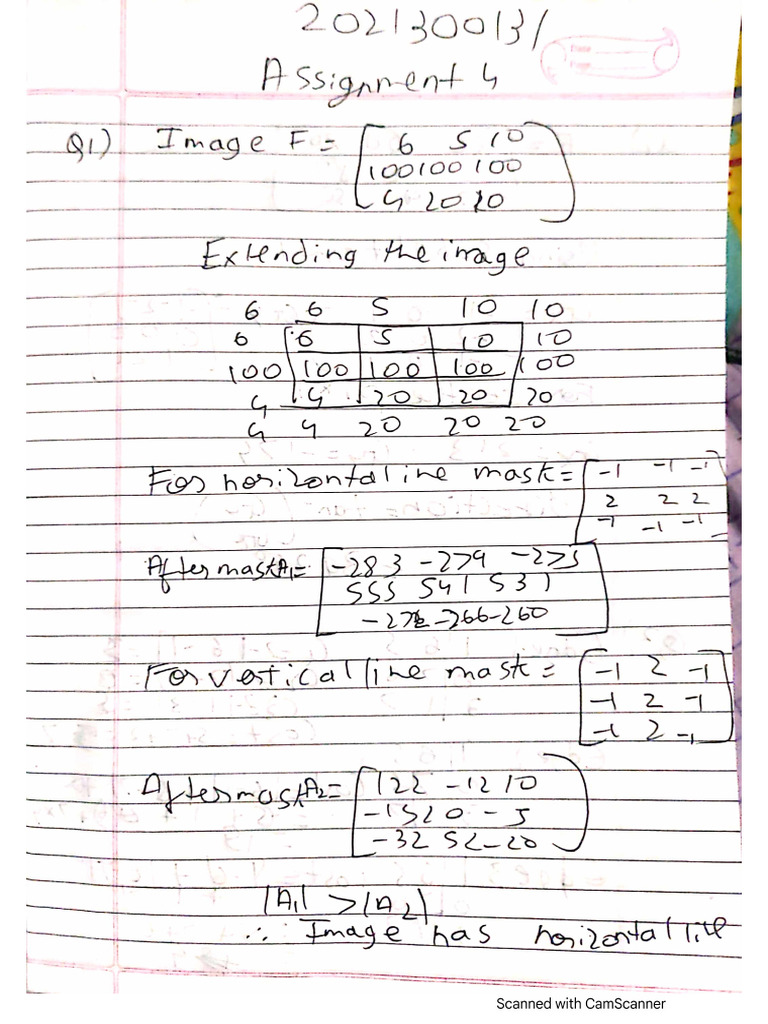 2021300131
Assignment 4
Q1) Image F = [6 5 10
100 100 100
4 20 20]
Extending the image
6 6 5 10 10
6 6 5 10 10
100 100 100 100 100
4 4 20 20 20
4 4 20 20 20
For horizontal line mask = [-1 -1 -1
2 2 2
-1 -1 -1]
After mask A1 = [-283 -279 -275
555 541 531
-266 -260]
For vertical line mask = [-1 2 -1
-1 2 -1
-1 2 -1]
After mask A2 = [122 -12 10
-15 20 -5
-32 52 -20]
|A1| > |A2|
∴ Image has horizontal line
Scanned with CamScanner